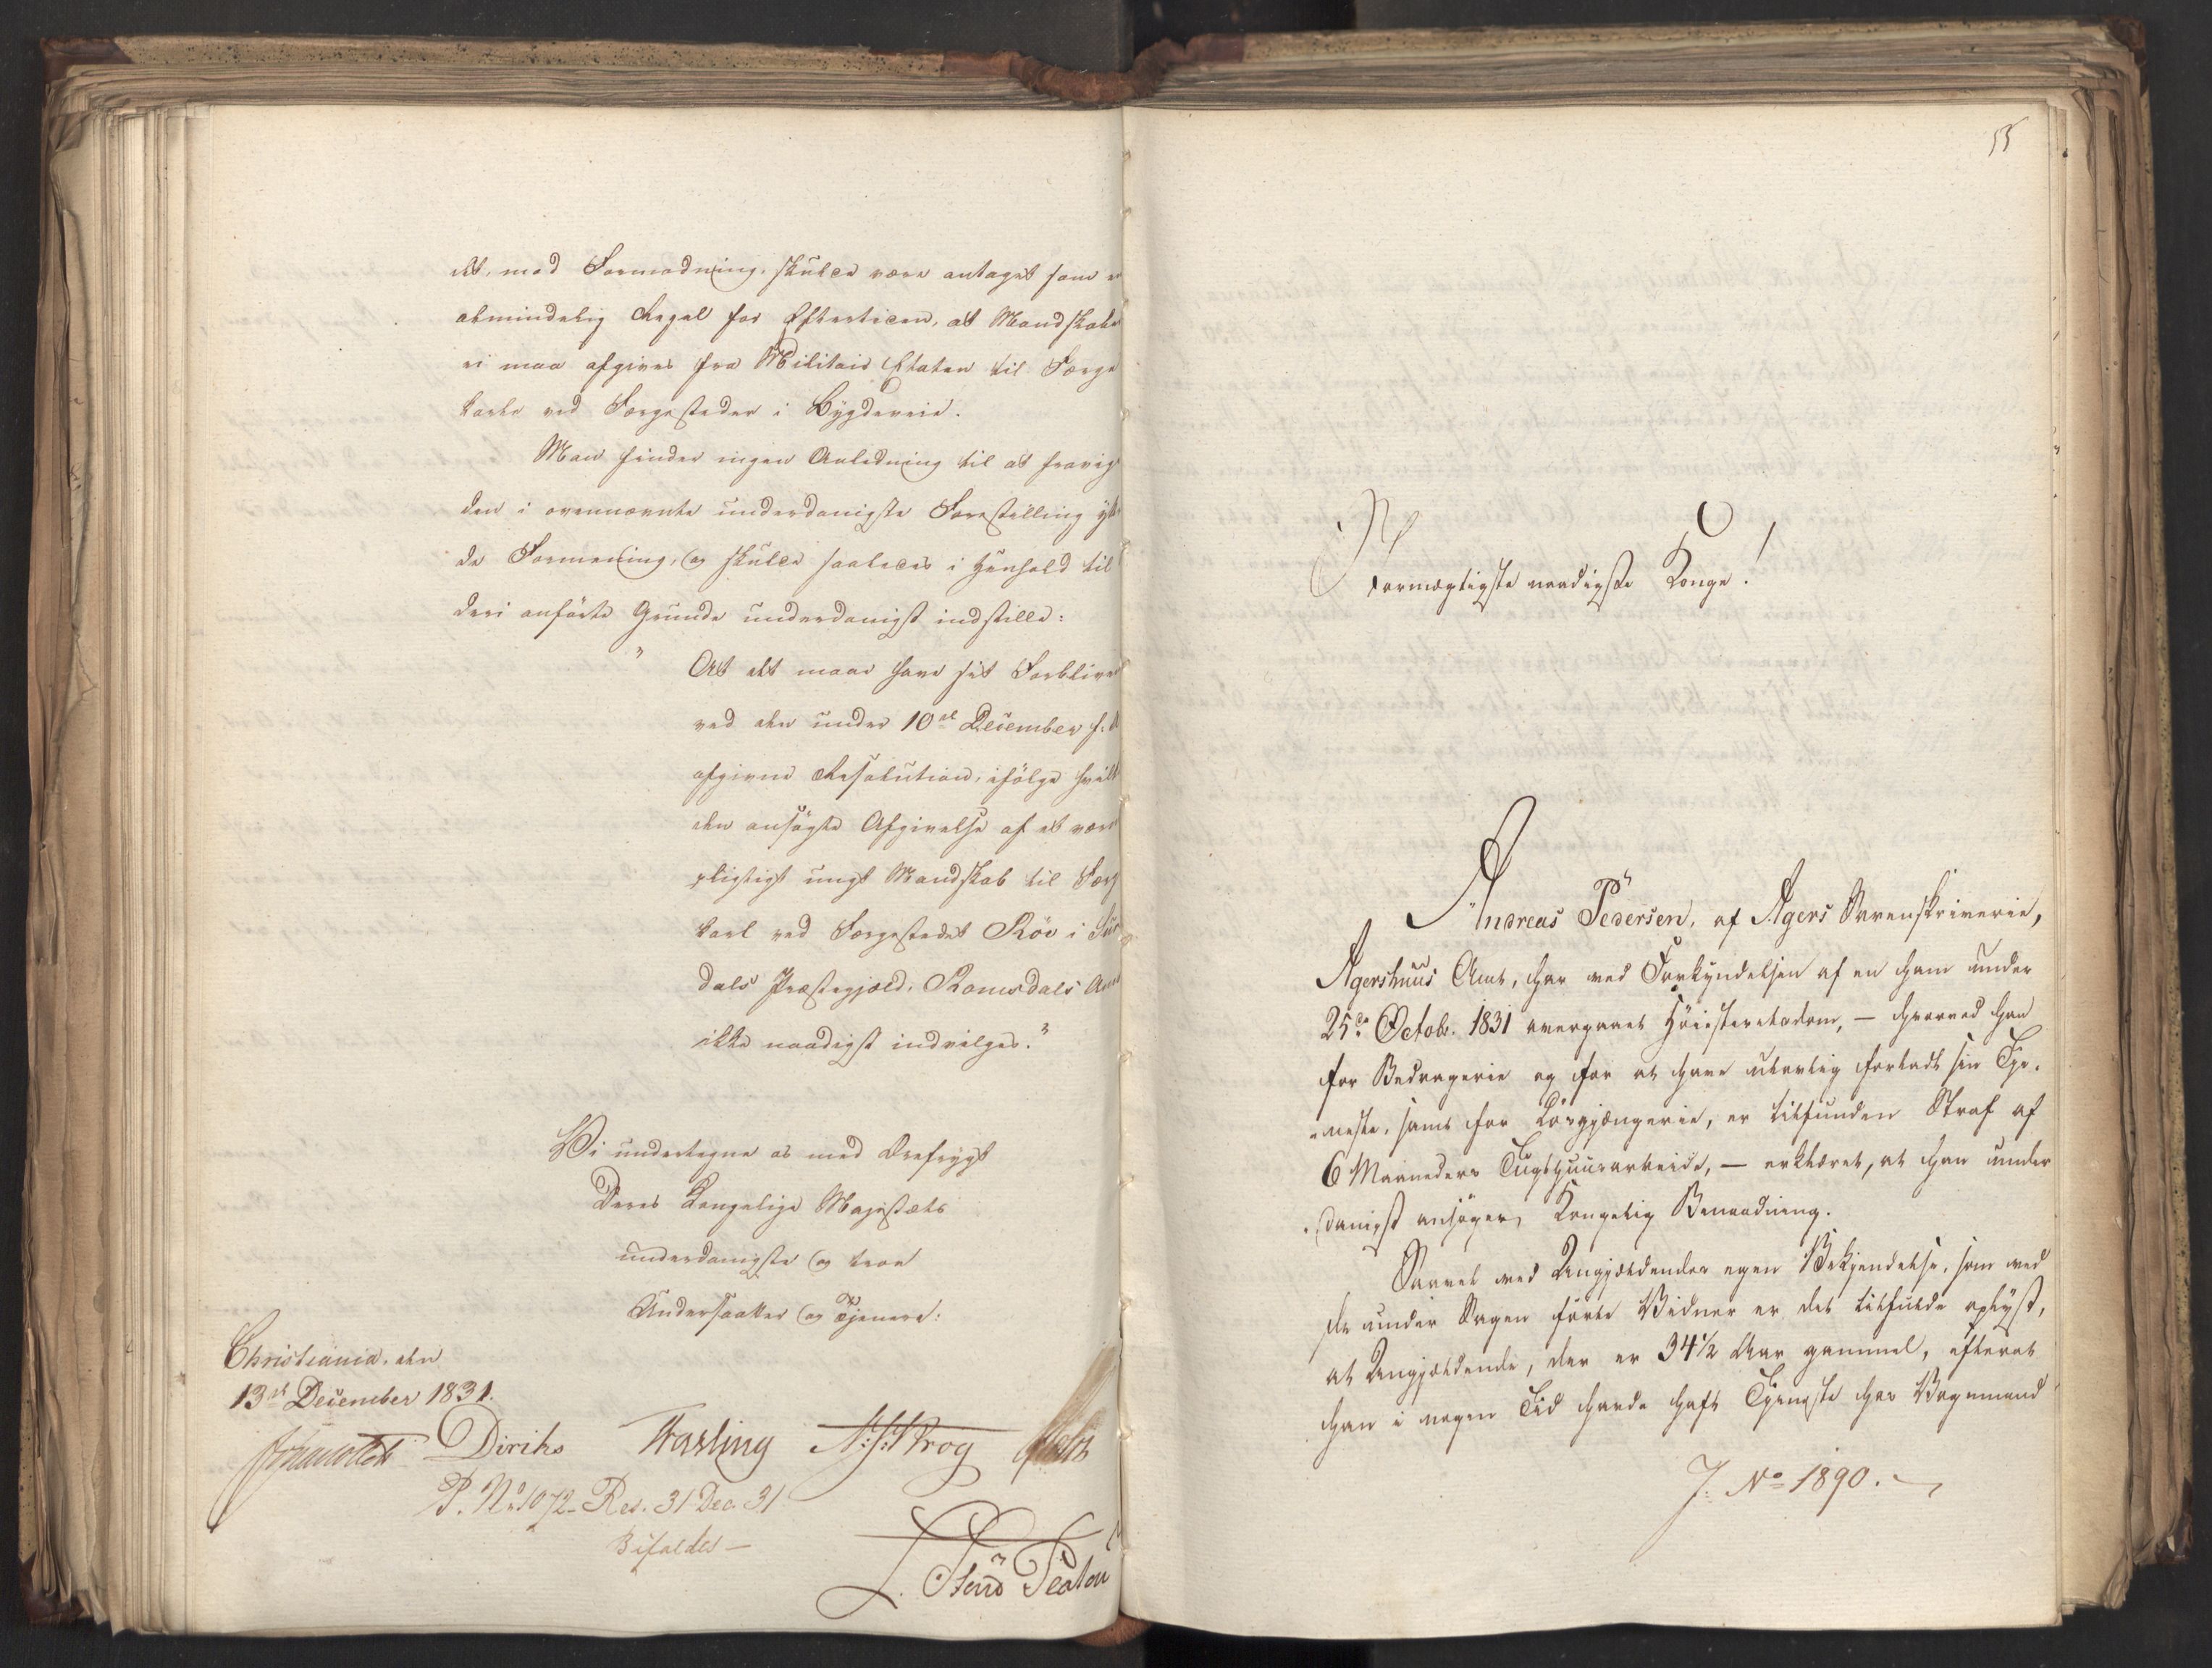 det, mod Formodning, skulde være antaget som en
almindelig Regel for Eftertiden, at Mandskaber
ei maa afgives fra Militair Etaten til Færge
karle ved Færgesteder i Bygdeveie.
Man finder ingen Anledning til at fravige
den i ovennævnte underdanigste Forestilling ytt
de Formening, og skulde saaledes i Henhold til
deri anførte Grunde underdanigst indstille:
" At det maae have sit Forblivende
ved den under 10de December f: A
afgivne Resolution, ifølge hvilk
den ansøgte Afgivelse af et værne
pligtigt ungt Mandskab til Færg
karl ved Færgestedet Røv i Sur
dals Præstegjæld, Romsdals Amt
ikke naadigst indvilges."
Vi undertegne os med Ærefrygt
Deres Kongelige Majestæts
underdanigste og troe
Undersaatter og Tjenere:
Christiania, den
13de December 1831.
Diriks Fasting N:J:Krog
P. No 1072 - Res. 31 Dec. 31
Bifaldes —
L. Stoud Platou
55
Stormægtigste naadigste Konge!
Andreas Pedersen, af Agers Sorenskriverie,
Agershuus Amt, har ved Forkyndelsen af en ham under
25de Octob. 1831 overgaaet Høiesteretsdom, — hvorved han
for Bedragerie og for at have ulovlig forladt sin Tje-
neste, samt for Løsgjængerie, er tilfunden Straf af
6 Maaneders Tugthuusarbeide, — erklæret, at han under
danigst ansøger Kongelig Benaadning.
Saavel ved Angjældendes egen Bekjendelse, som ved
de under Sagen førte Vidner er det tilfulde oplyst,
at Angjældende, der er 34 1/2 Aar gammel, efterat
han i nogen Tid havde haft Tjeneste hos Vognmand
J: No 1890.